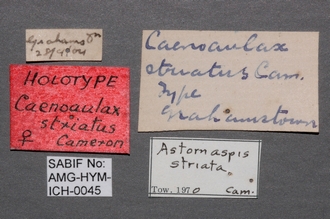 Grahamstn
HOLOTYPE
Caenoaulax
striatus
♀ Cameron
SABIF No:
AMG-HYM-
ICH-0045
Caenoaulax
striatus Cam.
Type
Grahamstown
Astomaspis
striata.
Tow. 1970 Cam.